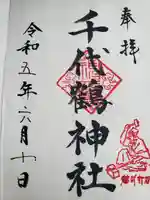 奉拝
千代鶴神社
令和五年六月十日